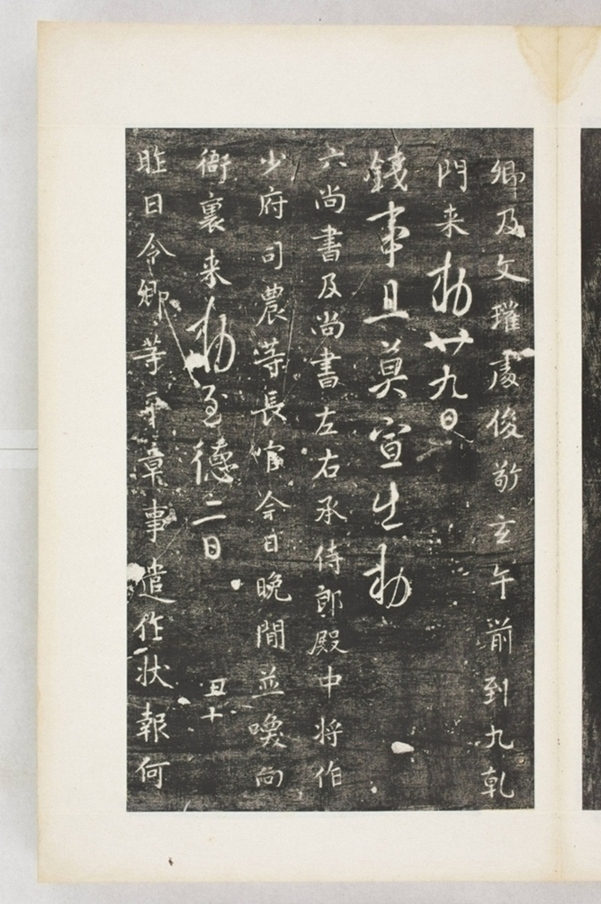 卿及文瓘處俊敬玄午前到九乾
門来勅廿九日
錢事且莫宣生勅
六尚書及尚書左右承侍郎殿中将作
少府司農等長官今日晚間並喚向
衙裏来勅至德二日
丑十
昨日令卿等平章事遣作状報何